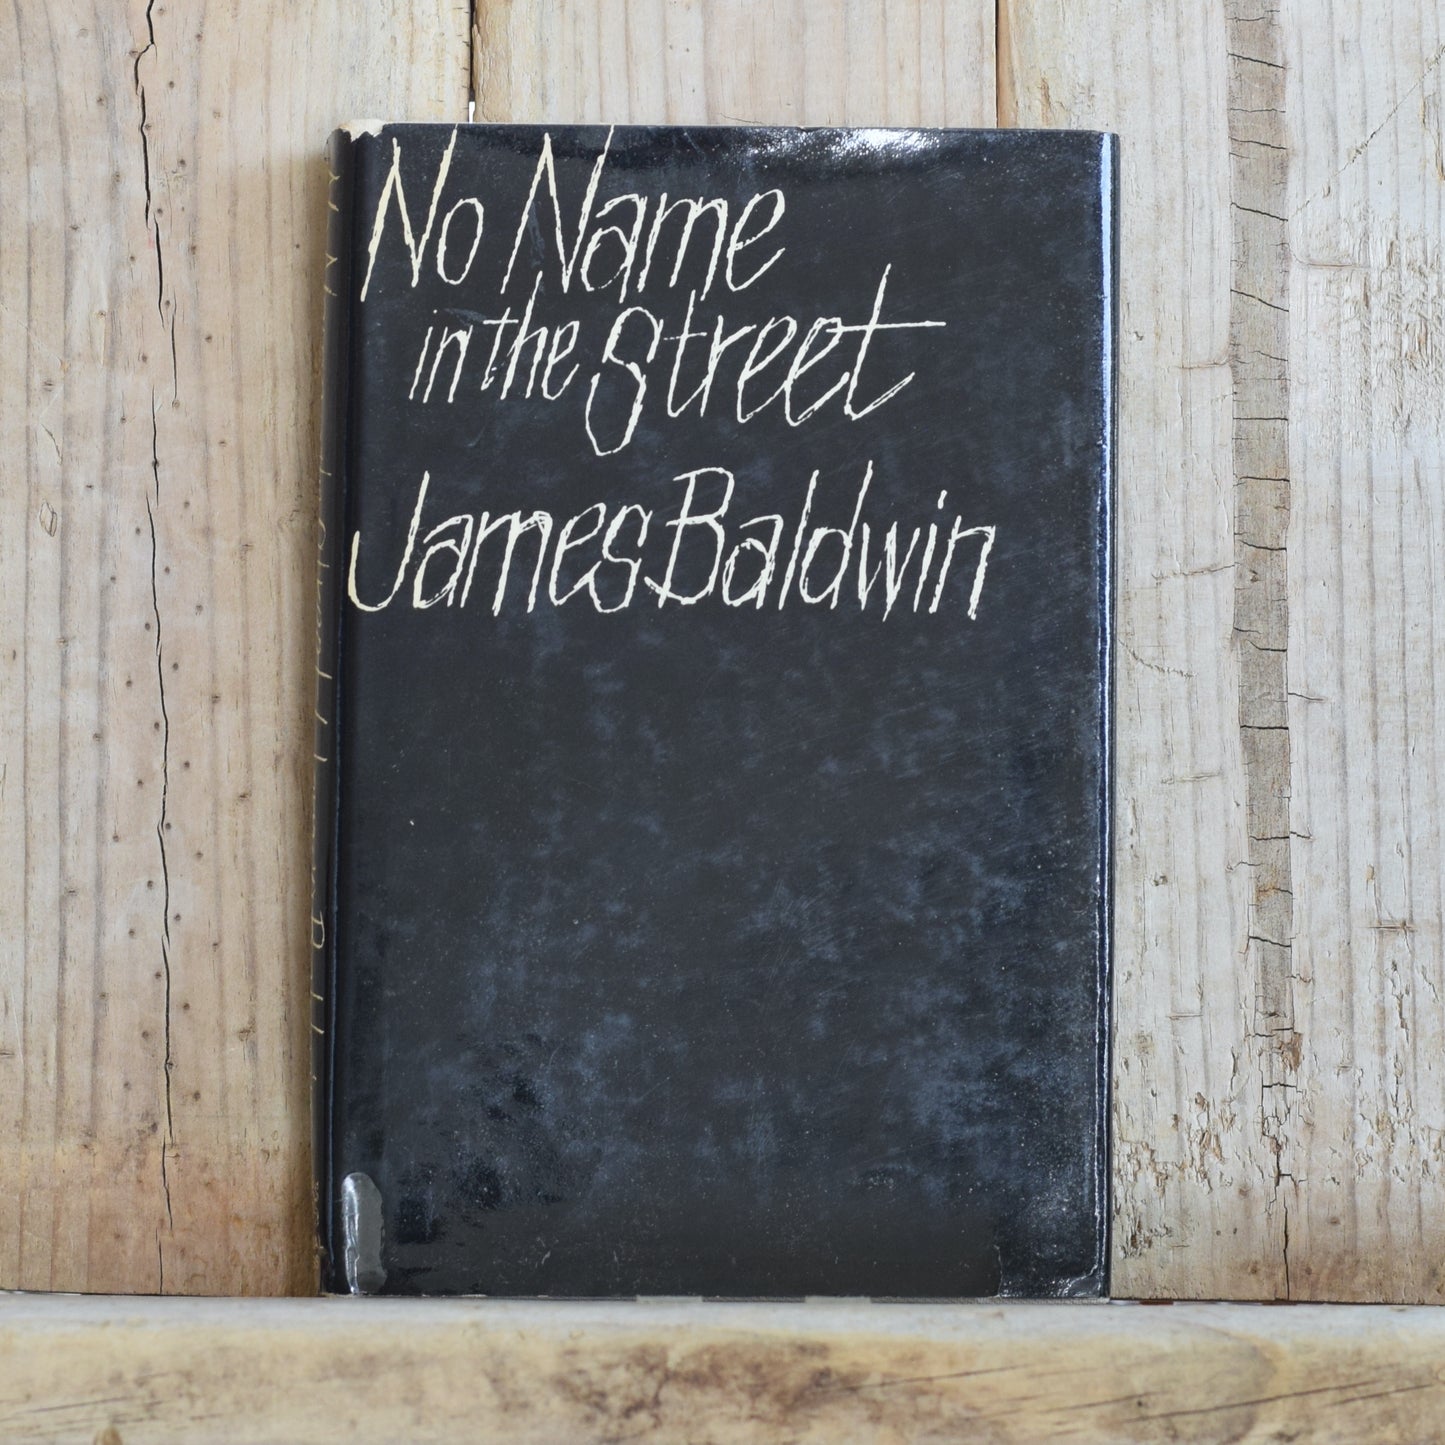 No Name
in the Street
James Baldwin